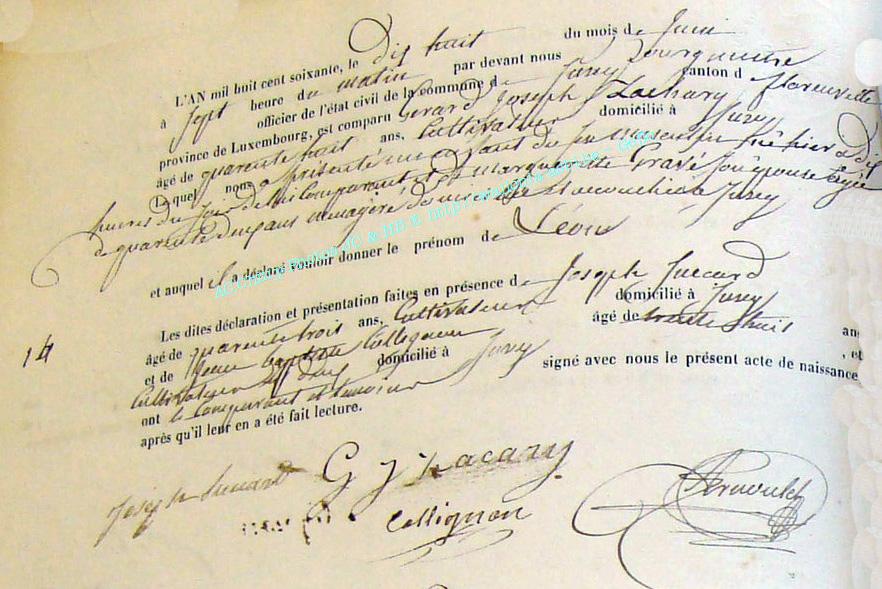 L'AN mil huit cent soixante, le Dix huit du mois de Juin
à Sept heure du matin par devant nous Bourgmestre
officier de l'état civil de la commune de Izel Jusey canton de Florenville
province de Luxembourg, est comparu Gérard Joseph Zachary domicilié à Jusey
âgé de quarente huit ans, Cultivateur
Lequel nous a présenté un enfant du sexe masculin né hier à dix
heures du soir de lui Comparant et de Marguerite Gravé son épouse âgée
de quarente cinq ans ménagère domiciliée et accouchée à Jusey
et auquel il a déclaré vouloir donner le prénom de Léon
Les dites déclaration et présentation faites en présence de Joseph Succard
âgé de quarente trois ans, Cultivateur domicilié à Jusey
et de Jean Baptiste Collignon âgé de trente huit ans
Cultivateur domicilié à Jusey , et
ont le Comparant et témoins signé avec nous le présent acte de naissance
après qu'il leur en a été fait lecture.
14
Joseph Succard G J Zacary
Collignon